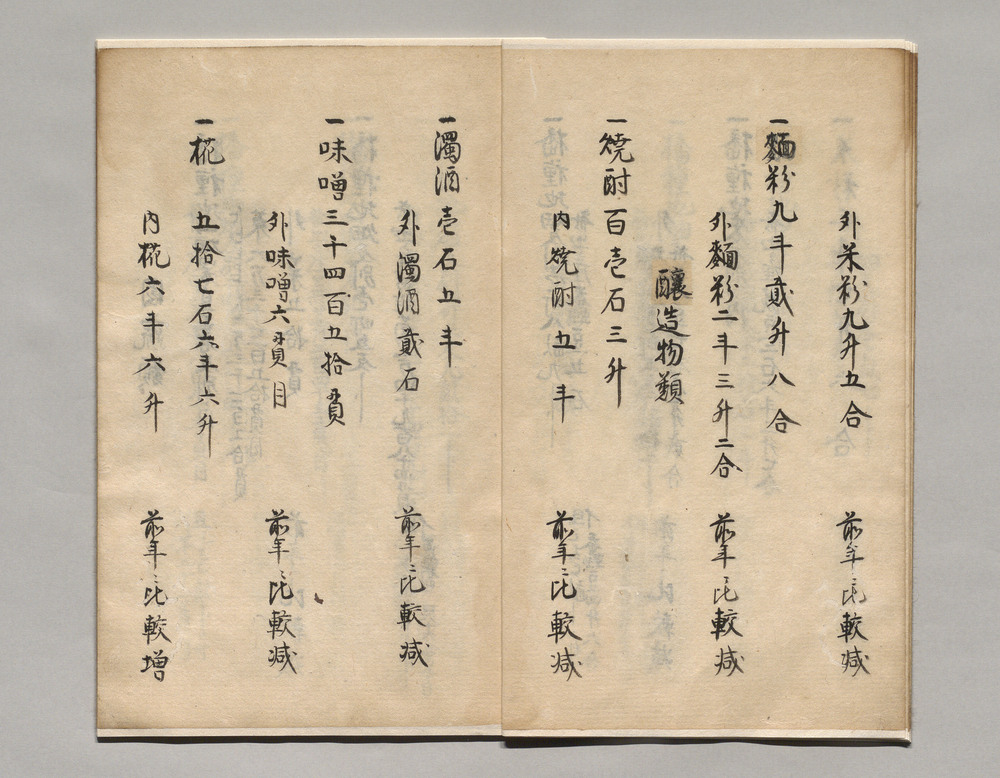 外米粉九升五合 前年ニ比較減
一麵粉九斗貳升八合
外麵粉二斗三升二合 前年ニ比較減
釀造物類
一焼酎百壱石三升
内焼酎五斗 前年ニ比較減
一濁酒壱石五斗
外濁酒貳石 前年ニ比較減
一味噌三千四百五拾貫
外味噌六貫目 前年ニ比較減
一糀五拾七石六斗六升
内糀六斗六升 前年ニ比較増